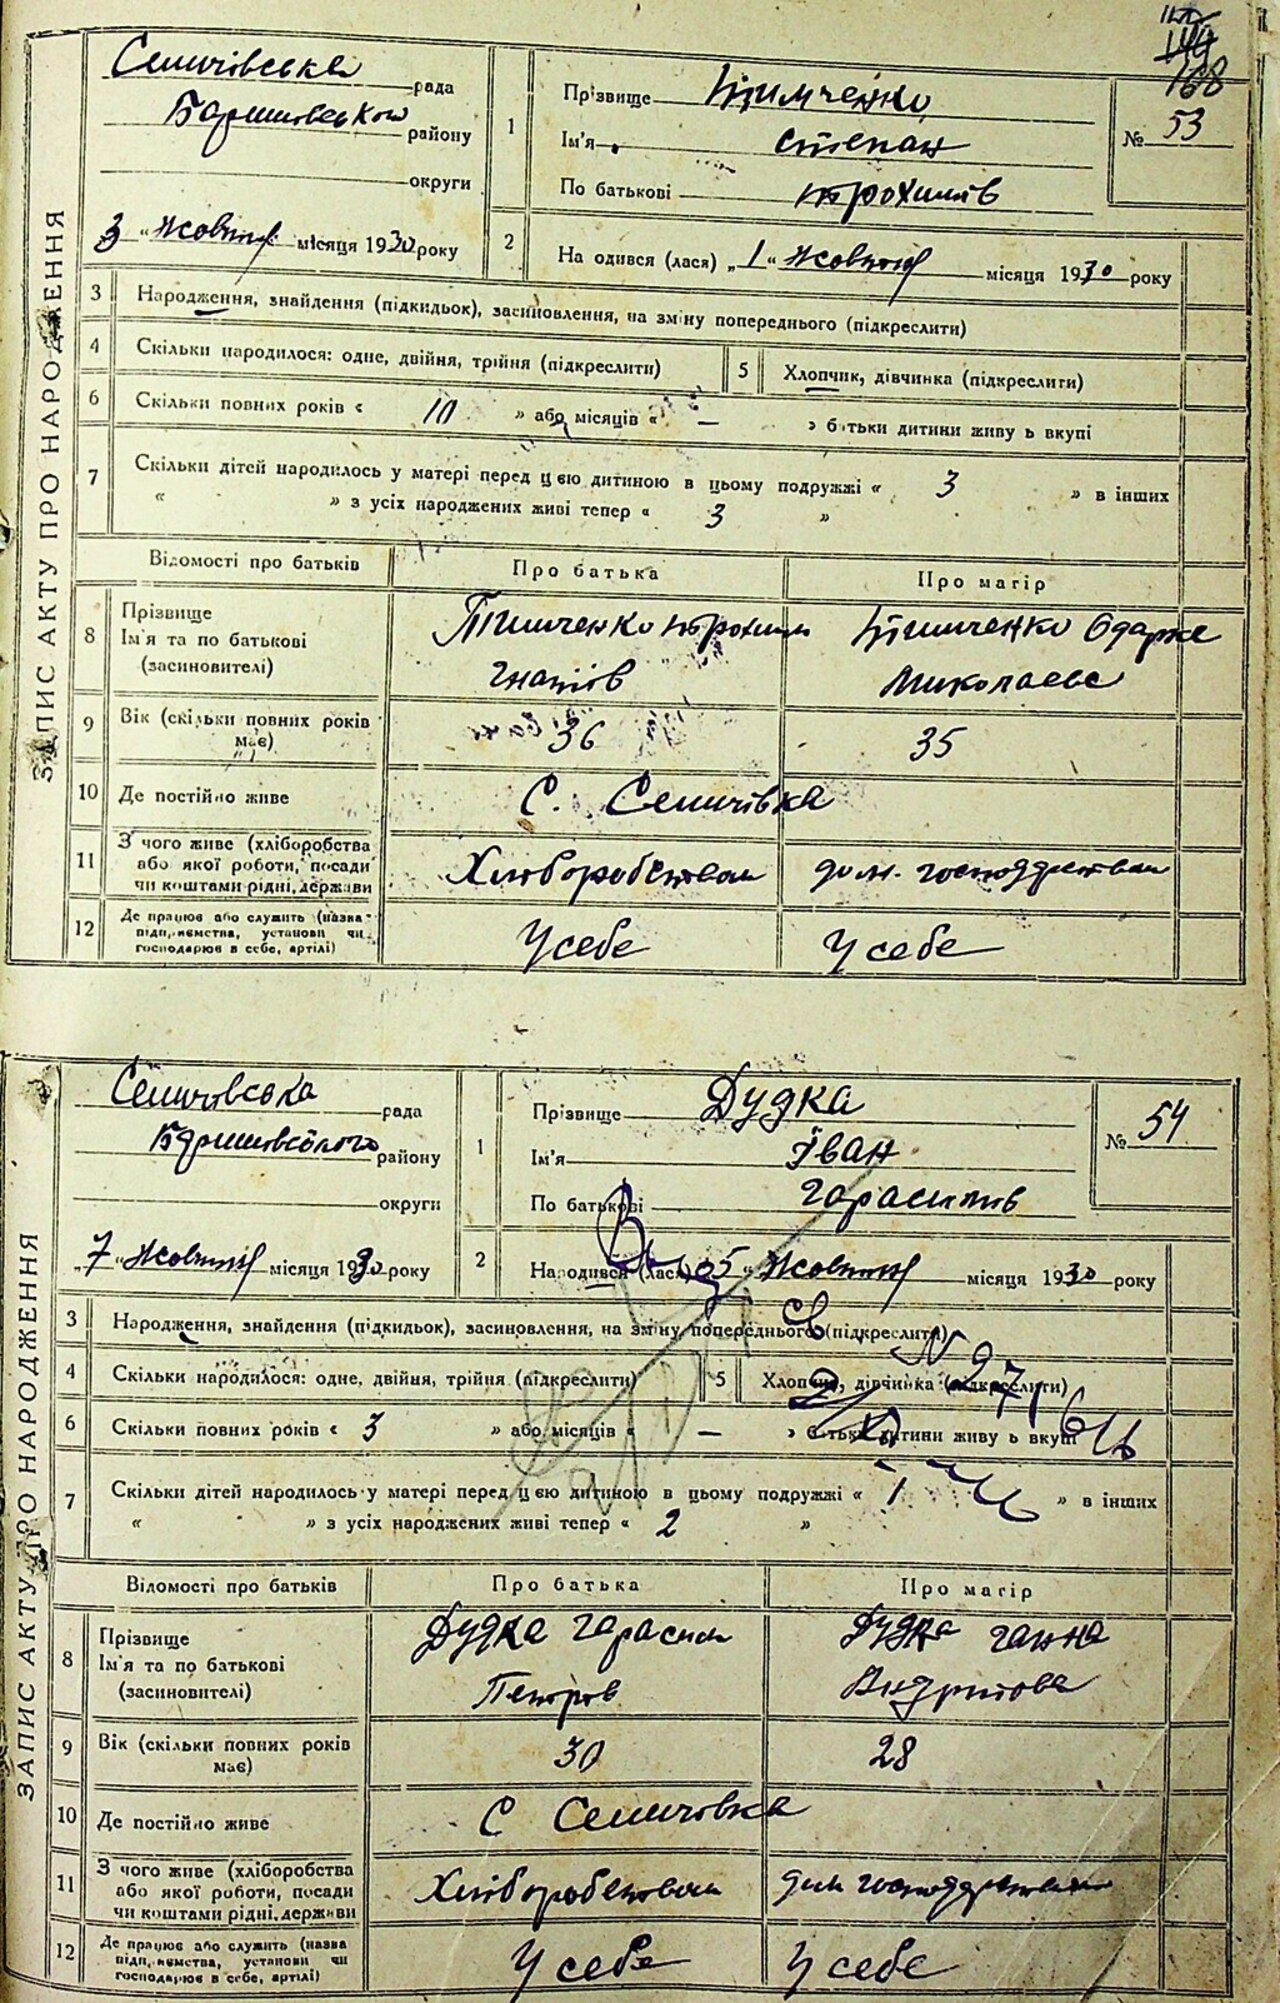 168
Семичівська рада
Баришовського району
округи
"3" Жовтня місяця 1930 року
ЗАПИС АКТУ ПРО НАРОДЖЕННЯ
1 Прізвище Тимченко
Ім'я Степан
По батькові Трохимів
№ 53
2 На одився (лася) „1" Жовтня місяця 1930 року
3 Народження, знайдення (підкидьок), засиновлення, на зміну попереднього (підкреслити)
4 Скільки народилося: одне, двійня, трійня (підкреслити)
5 Хлопчик, дівчинка (підкреслити)
6 Скільки повних років « 10 » або місяців « — » батьки дитини живуть вкупі
7 Скільки дітей народилось у матері перед цією дитиною в цьому подружжі « 3 » в інших
« » з усіх народжених живі тепер « 3 »
Відомості про батьків Про батька Про матір
8 Прізвище
Ім'я та по батькові
(засиновителі)
Тимченко Трохим
Гнатів
Тимченко Одарка
Миколаєва
9 Вік (скільки повних років
має)
36 35
10 Де постійно живе С. Семичівка
11 З чого живе (хліборобства
або якої роботи, посади
чи коштами рідні, держави
Хліборобством дом. господарством
12 Де працює або служить (назва
підприємства, установи чи
господарює в себе, артілі)
У себе У себе
Семичовська рада
Баришовського району
округи
„7" Жовтня місяця 1930 року
ЗАПИС АКТУ ПРО НАРОДЖЕННЯ
1 Прізвище Дудка
Ім'я Іван
По батькові Гарасимів
№ 54
2 Народився (лася) „5" Жовтня місяця 1930 року
3 Народження, знайдення (підкидьок), засиновлення, на зміну попереднього (підкреслити)
4 Скільки народилося: одне, двійня, трійня (підкреслити)
5 Хлопчик, дівчинка (підкреслити)
6 Скільки повних років « 3 » або місяців « — » батьки дитини живуть вкупі
7 Скільки дітей народилось у матері перед цією дитиною в цьому подружжі « 1 » в інших
« » з усіх народжених живі тепер « 2 »
Відомості про батьків Про батька Про матір
8 Прізвище
Ім'я та по батькові
(засиновителі)
Дудка Гарасим
Петрів
Дудка Ганна
9 Вік (скільки повних років
має)
30 28
10 Де постійно живе С Семичовка
11 З чого живе (хліборобства
або якої роботи, посади
чи коштами рідні, держави
Хліборобством дом господарством
12 Де працює або служить (назва
підприємства, установи чи
господарює в себе, артілі)
У себе У себе